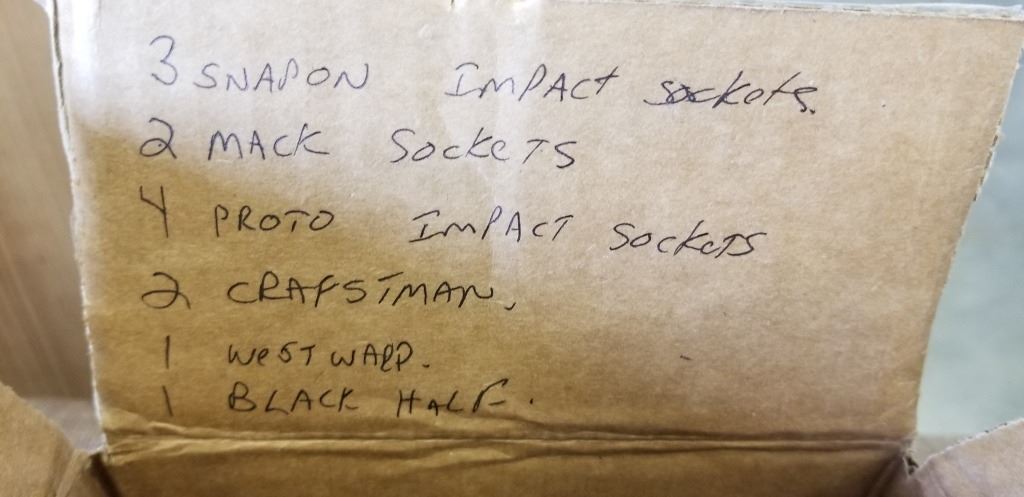 3 SNAPON IMPACT sockets.
2 MACK SOCKETS
4 PROTO IMPACT SOCKETS
2 CRAFSTMAN.
1 WESTWARD.
1 BLACK HALF.